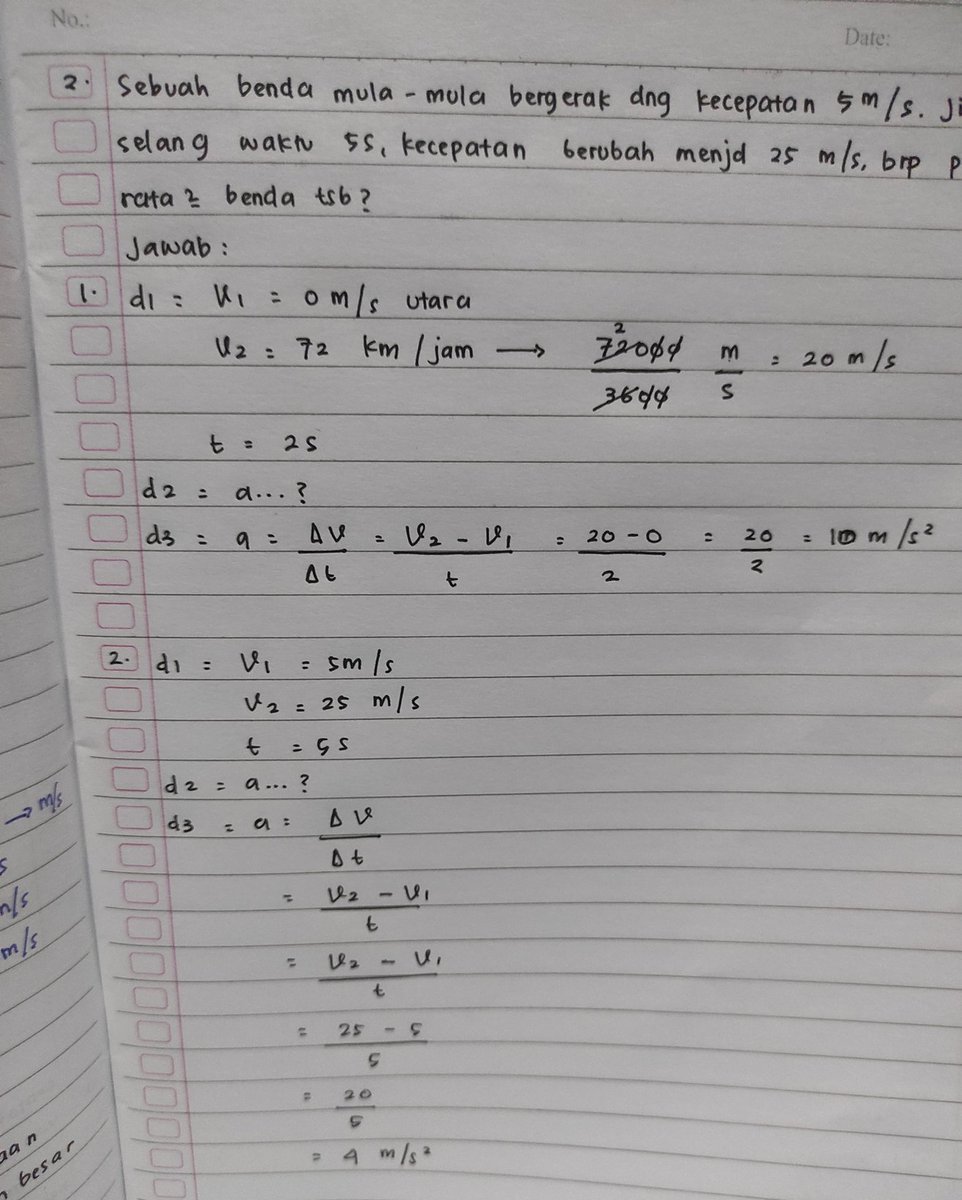 No.:
Date:
2. Sebuah benda mula-mula bergerak dng kecepatan 5 m/s.
selang waktu 5s, kecepatan berubah menjd 25 m/s, brp
rata2 benda tsb?
Jawab:
1. d1 = V1 = 0 m/s utara
V2 = 72 km/jam → 72000/3600 m/s = 20 m/s
2
t = 2s
d2 = a...?
d3 = a = ΔV/Δt = V2 - V1/t = 20-0/2 = 20/2 = 10 m/s²
2. d1 = V1 = 5m/s
V2 = 25 m/s
t = 5s
d2 = a...?
d3 = a = ΔV/Δt
= V2 - V1/t
= V2 - V1/t
= 25 - 5/5
= 20/5
= 4 m/s²
→ m/s
s
m/s
m/s
aan
besar